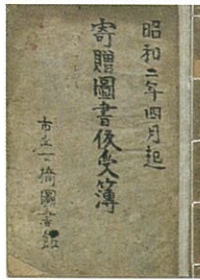 昭和二年四月起
寄贈圖書假受簿
市立一橋圖書館